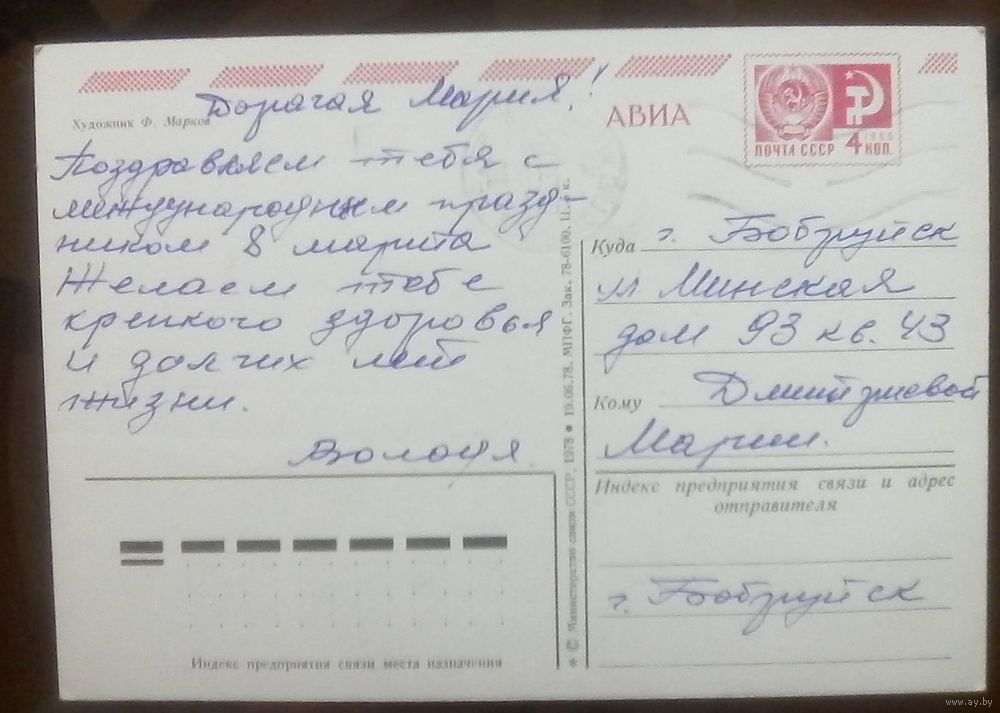 Художник Ф. Марков
Дорогая Мария!
Поздравляем тебя с
международным празд-
ником 8 марта
Желаем тебе
крепкого здоровья
и долгих лет
жизни.
Володя
АВИА
1966
ПОЧТА СССР 4 КОП.
Куда г. Бобруйск
ул Минская
дом 93 кв. 43
Кому Дмитриевой
Марии.
Индекс предприятия связи и адрес
отправителя
г. Бобруйск
Индекс предприятия связи места назначения
* © Министерство связи СССР, 1978 • 19.06.78. МПФГ. Зак. 78-6100. Ц. 6 к.
www.ay.by